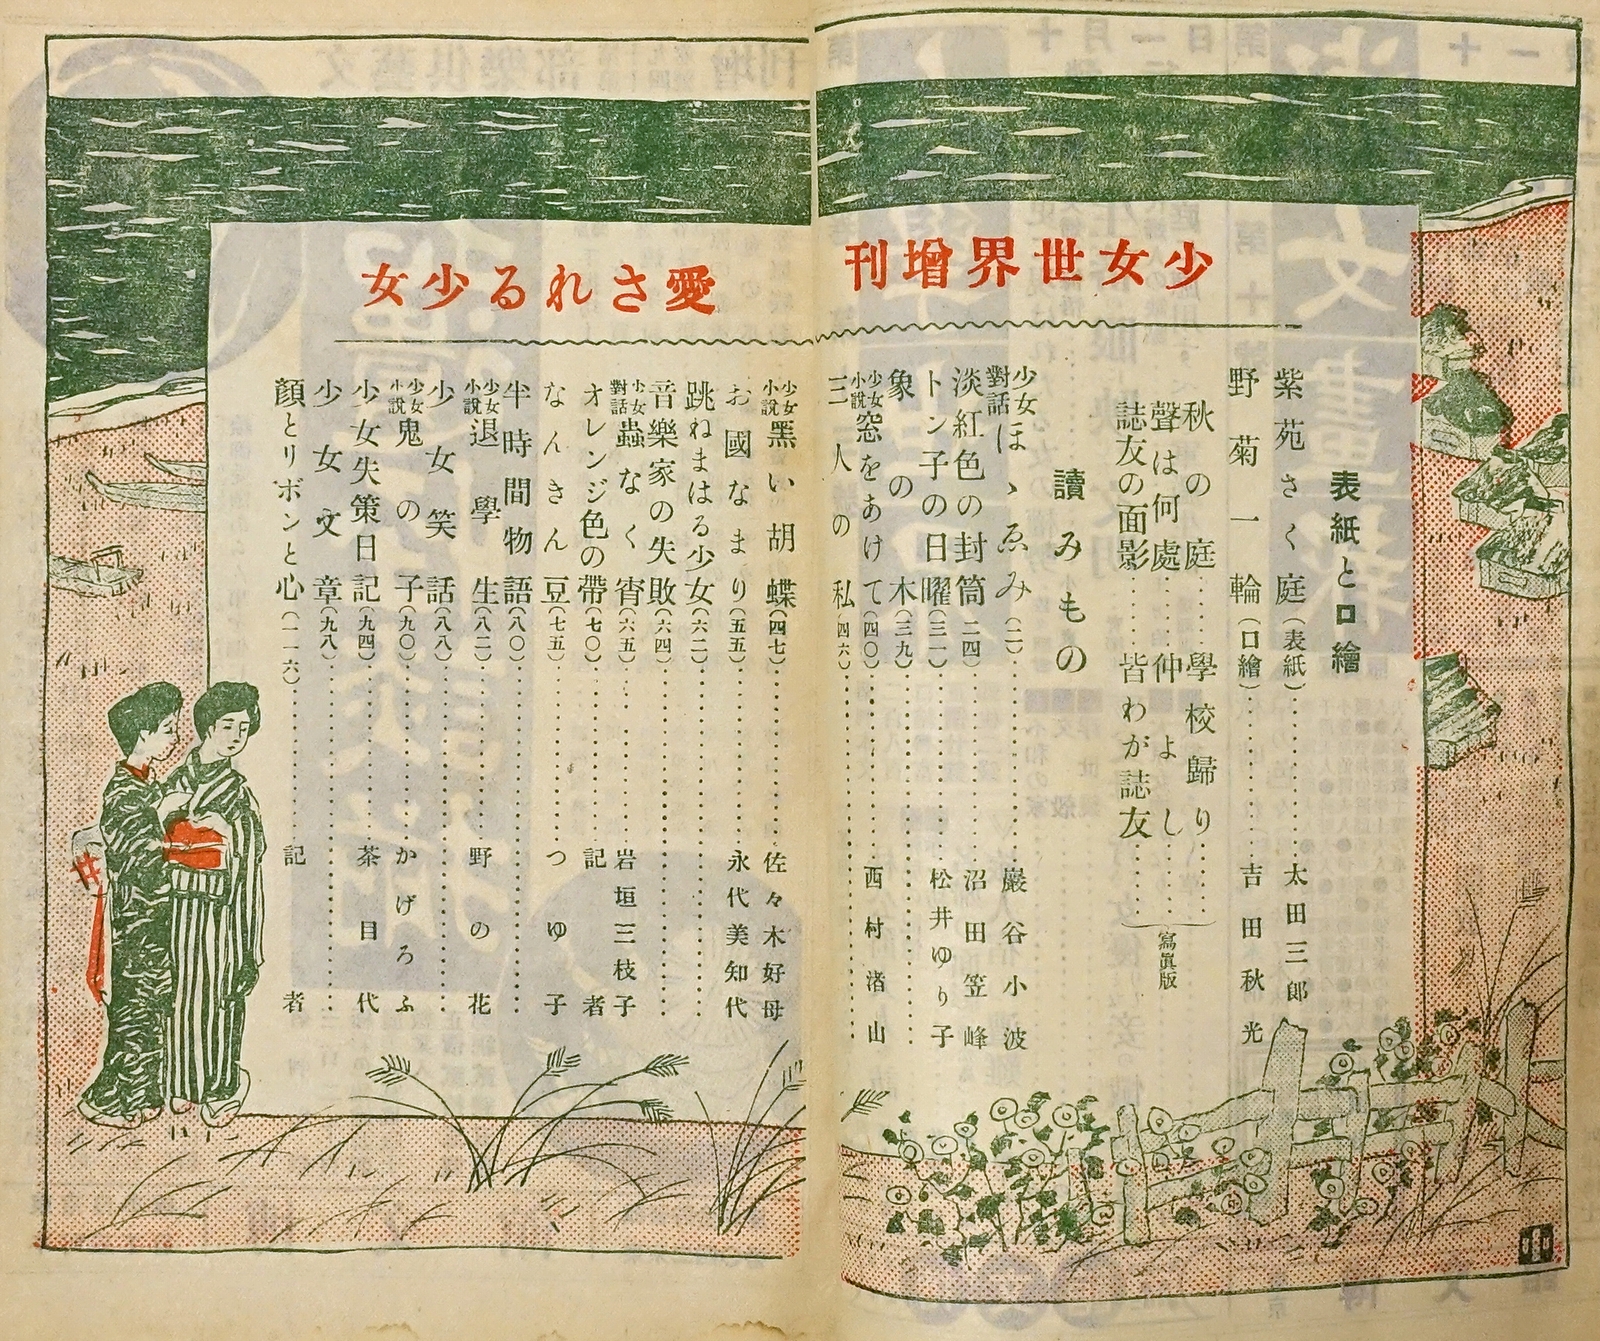 少女世界增刊
愛される少女
表紙と口繪
紫苑さく庭(表紙)……太田三郎
野菊一輪(口繪)……吉田秋光
秋の庭……學校歸り……
聲は何處……仲よし……
誌友の面影……皆わが誌友……
寫眞版
讀みもの
少女對話 ほゝゑみ(二)……巖谷小波
淡紅色の封筒(二四)……沼田笠峰
トン子の日曜(三一)……松井ゆり子
象の木(三九)……
少女小說 窓をあけて(四〇)……西村渚山
三人の私(四六)……
少女小說 黑い胡蝶(四七)……佐々木好母
お國なまり(五五)……永代美知代
跳ねまはる少女(六二)……
音樂家の失敗(六四)……
少女對話 蟲なく宵(六五)……岩垣三枝子
オレンジ色の帶(七〇)……記者
なんきん豆(七五)……つゆ子
半時間物語(八〇)……
少女小說 退學生(八二)……野の花
少女笑話(八八)……
少女小說 鬼の子(九〇)……かげろふ
少女失策日記(九四)……茶目代
少女文章(九八)……
顏とリボンと心(一一六)……記者